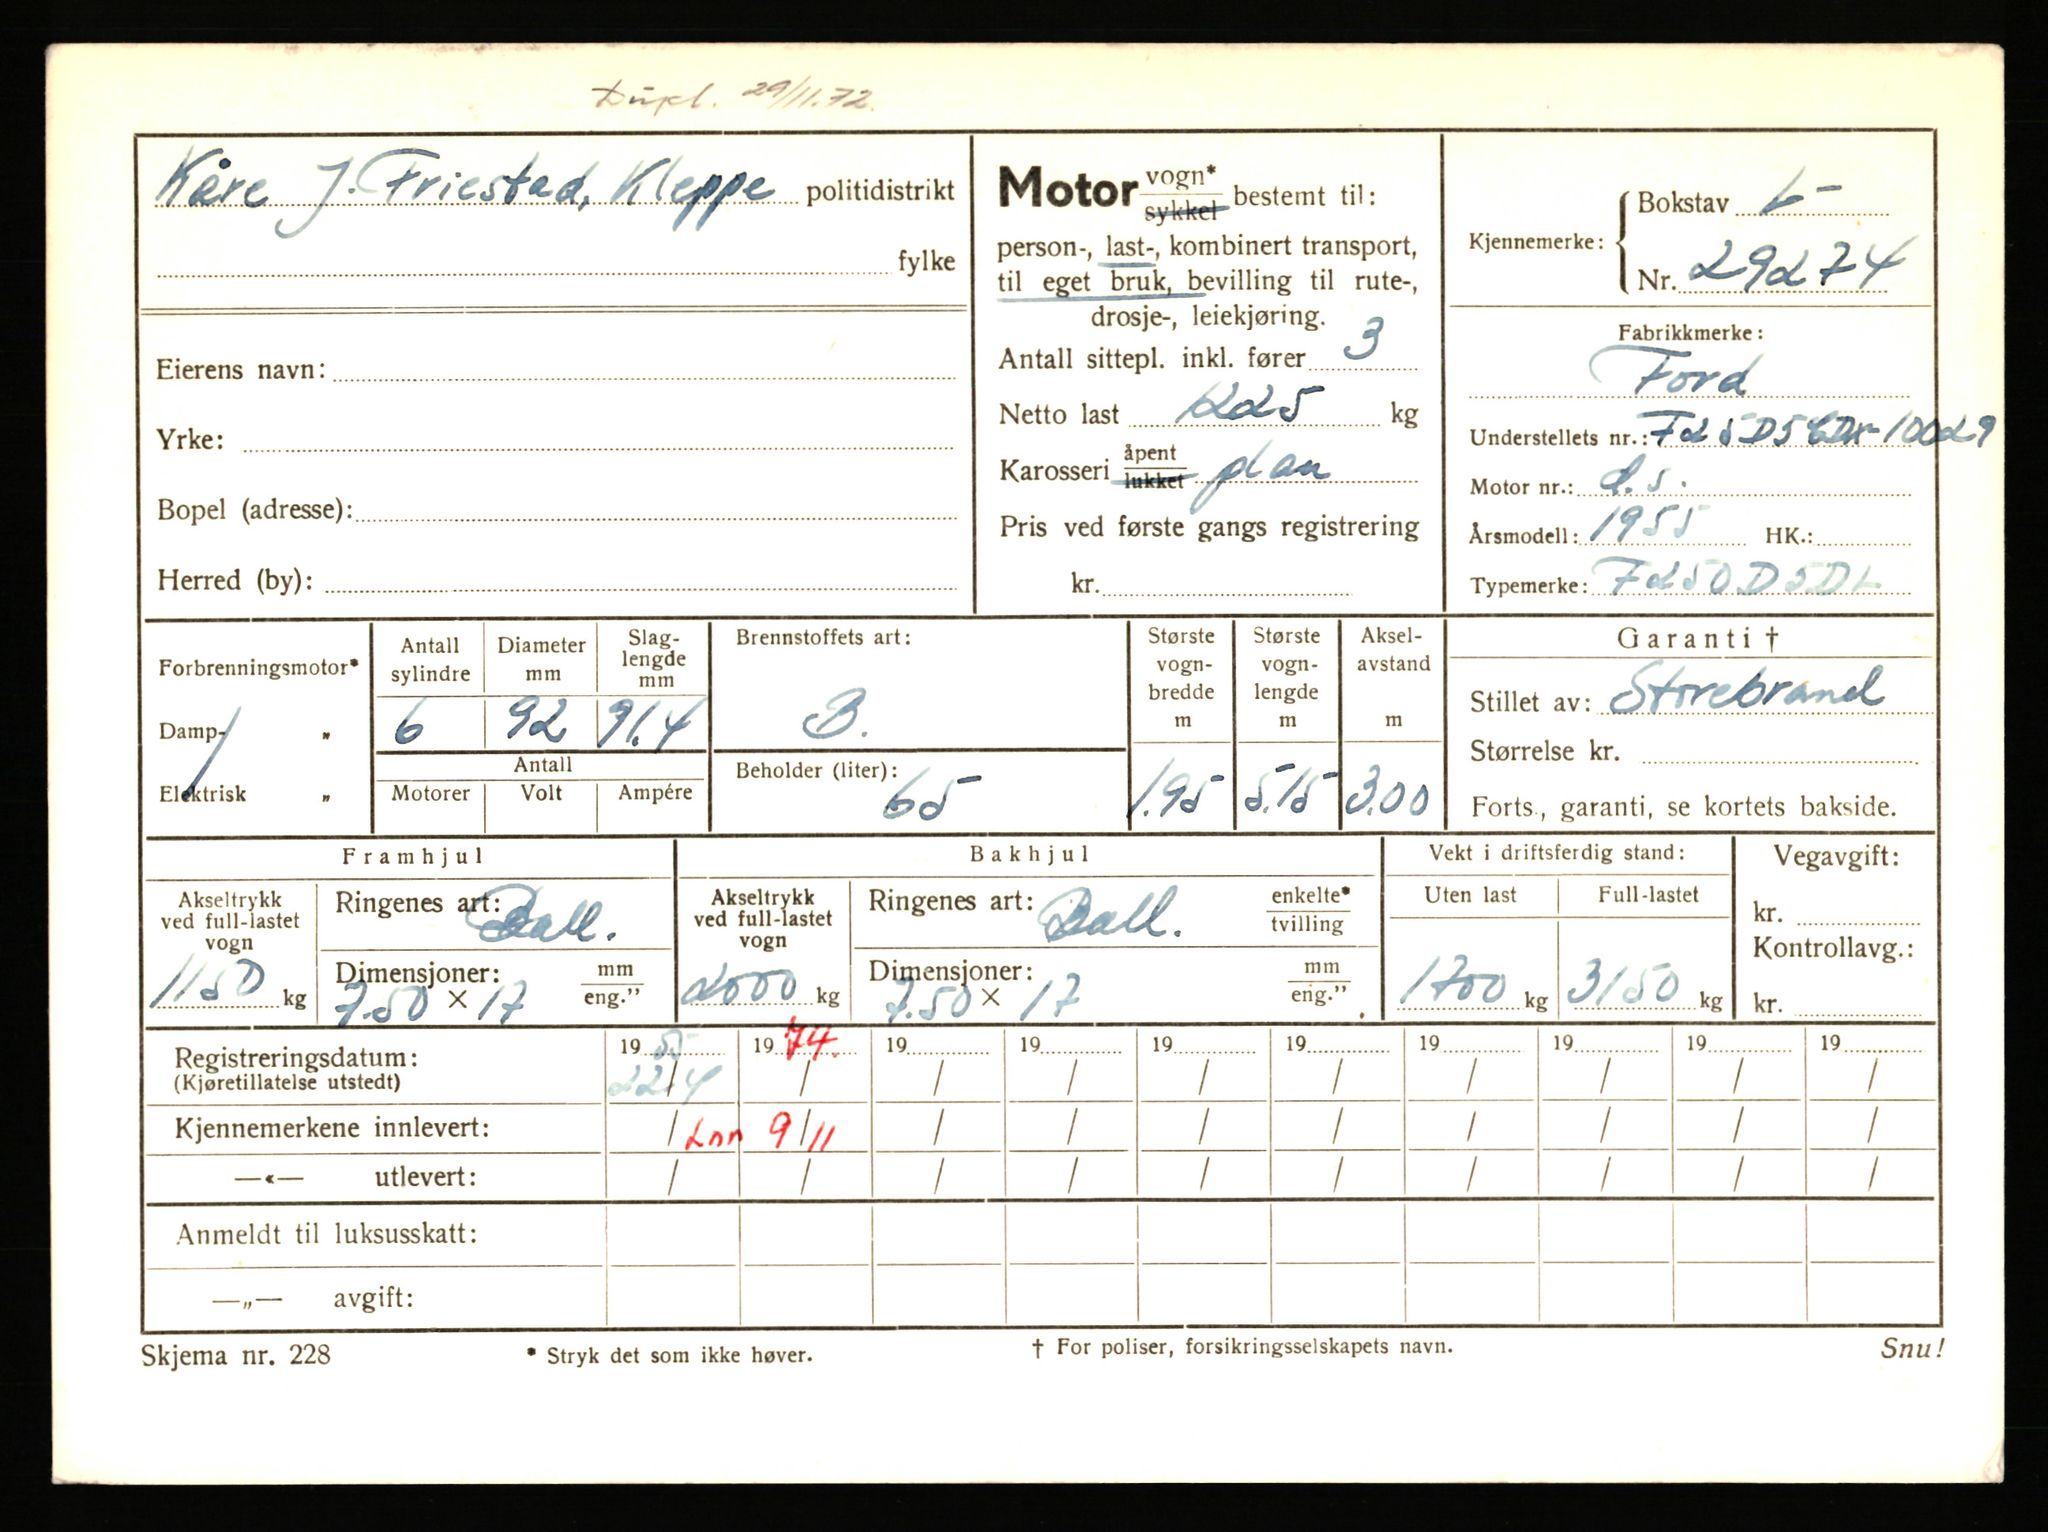 Dupl. 29/11.72.
Kåre J. Friestad, Kleppe politidistrikt
fylke
Eierens navn:
Yrke:
Bopel (adresse):
Herred (by):
Motor vogn* sykkel bestemt til:
person-, last-, kombinert transport,
til eget bruk, bevilling til rute-,
drosje-, leiekjøring.
Antall sittepl. inkl. fører 3
Netto last 1225 kg
Karosseri åpent lukket plan
Pris ved første gangs registrering
kr.
Kjennemerke: Bokstav L-
Nr. 29274
Fabrikkmerke:
Ford
Understellets nr.:
Motor nr.: d.s.
Årsmodell: 1955 HK.:
Typemerke: F250D5DL
Forbrenningsmotor*
Damp- „
Elektrisk „
Antall sylindre 6
Diameter mm 92
Slag-lengde mm 91.4
Antall
Motorer Volt Ampére
Brennstoffets art:
B.
Beholder (liter): 65
Største vogn-bredde m 1.95
Største vogn-lengde m 5.15
Aksel-avstand m 3.00
Garanti †
Stillet av: Storebrand
Størrelse kr.
Forts., garanti, se kortets bakside.
Framhjul
Akseltrykk ved full-lastet vogn 1150 kg
Ringenes art: Ball.
Dimensjoner: 7.50 × 17 mm eng.”
Bakhjul
Akseltrykk ved full-lastet vogn 2000 kg
Ringenes art: Ball. enkelte* tvilling
Dimensjoner: 7.50 × 17 mm eng.”
Vekt i driftsferdig stand:
Uten last 1700 kg
Full-lastet 3150 kg
Vegavgift:
kr.
Kontrollavg.:
kr.
Registreringsdatum: 1955 1974. 19 19 19 19 19 19 19 19
(Kjøretillatelse utstedt) 22/4 / / / / / / / / /
Kjennemerkene innlevert: / Inn 9/11 / / / / / / / /
—«— utlevert: / / / / / / / / / /
Anmeldt til luksusskatt:
—„— avgift:
Skjema nr. 228 * Stryk det som ikke høver. † For poliser, forsikringsselskapets navn. Snu!